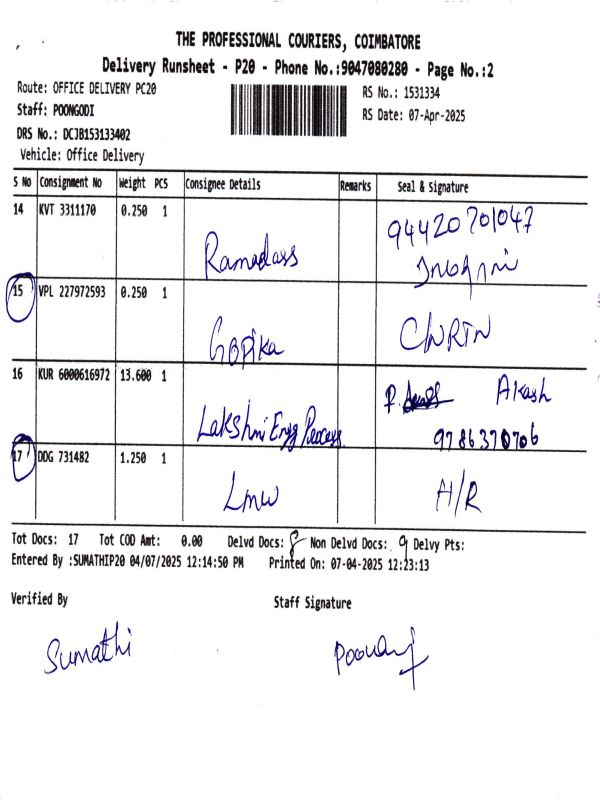 THE PROFESSIONAL COURIERS, COIMBATORE
Delivery Runsheet - P20 - Phone No.:9047080280 - Page No.:2
Route: OFFICE DELIVERY PC20 RS No.: 1531334
Staff: POONGODI RS Date: 07-Apr-2025
DRS No.: DCJB153133402
Vehicle: Office Delivery
S No Consignment No Weight PCS Consignee Details Remarks Seal & Signature
14 KVT 3311170 0.250 1 Ramadass 94420701047
15 VPL 227972593 0.250 1 Gopika
16 KUR 6000616972 13.600 1 Lakshmi Engg Process P. Akash
9786370706
17 DDG 731482 1.250 1 LMW H/R
Tot Docs: 17 Tot COD Amt: 0.00 Delvd Docs: 8 Non Delvd Docs: 9 Delvy Pts:
Entered By :SUMATHIP20 04/07/2025 12:14:50 PM Printed On: 07-04-2025 12:23:13
Verified By Staff Signature
Sumathi